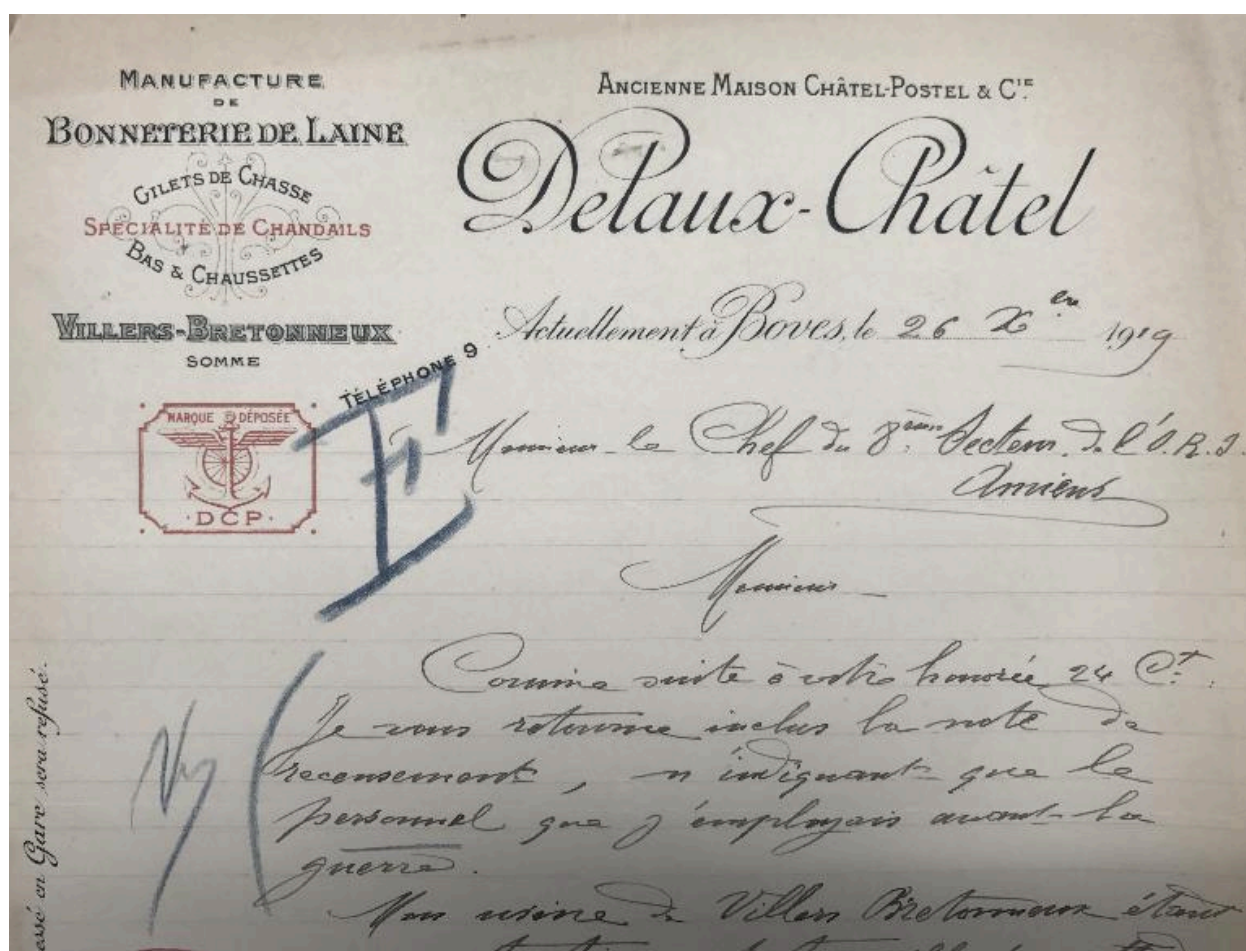 MANUFACTURE
DE
BONNETERIE DE LAINE
GILETS DE CHASSE
SPÉCIALITÉ DE CHANDAILS
BAS & CHAUSSETTES
VILLERS-BRETONNEUX
SOMME
TÉLÉPHONE 9
MARQUE DÉPOSÉE
DCP
ANCIENNE MAISON CHÂTEL-POSTEL & CIE
Delaux-Châtel
Actuellement à Boves, le 26 Xbre 1919
Monsieur le Chef du 8ème Secteur de l'O.R.I.
Amiens
Monsieur
Comme suite à votre honorée 24 Ct.
Je vous retourne inclus la note de
recensement, n'indiquant que le
personnel que j'employais avant la
guerre.
Mon usine de Villers Bretonneux étant
essé en Gare sera refusé.